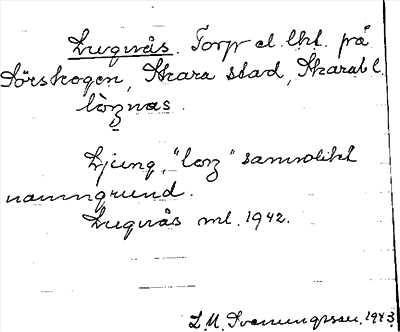 Lugnås. Torp el. lht. på
Sörskogen, Skara stad, Skarab l.
Ljung, "lorz" samvolikt
namngrund.
Lugnås ml. 1942.
L. M. Svenungsson, 1943.